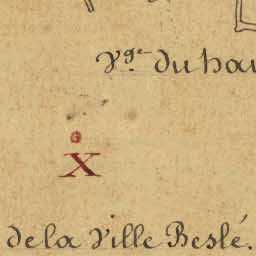 Vge. du hau
G
X
de la Ville Beslé.